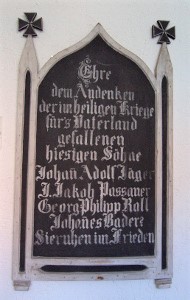 Ehre
dem Andenken
der im heiligen Kriege
für's Vaterland
gefallenen
hiesigen Söhne
Johan Adolf Jäger
J. Jakob Passauer
Georg Philipp Roll
Johañes Baderz
Sie ruhen im Frieden